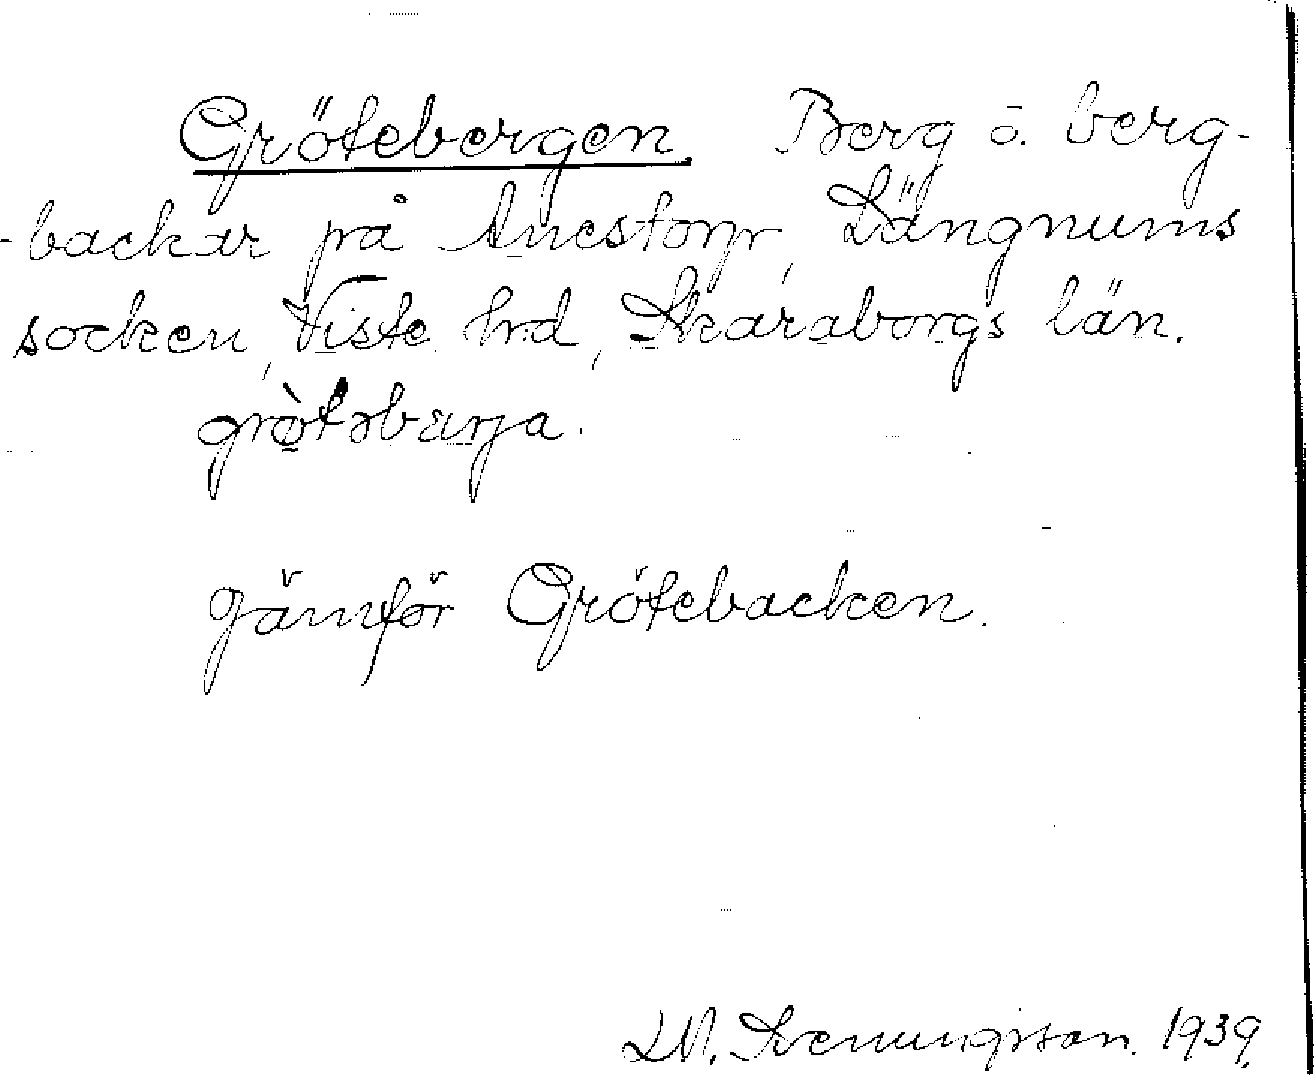 Grötebergen. Berg o. berg-
-backar på Anestorp, Längnums
socken, Viste hrd, Skaraborgs län.
grø̀təbærja.
Jämför Grötebacken.
Svenungsson. 1939.